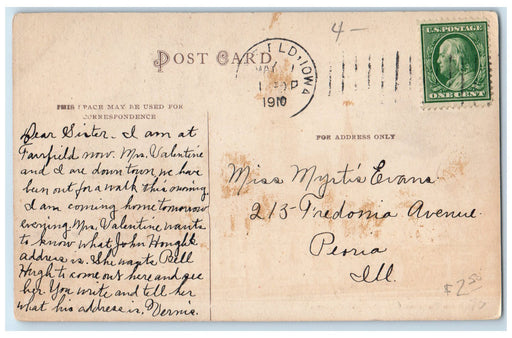 4-
POST CARD
FIELD, IOWA
MAY
1910
U.S. POSTAGE
ONE CENT
THIS SPACE MAY BE USED FOR
CORRESPONDENCE
FOR ADDRESS ONLY
Dear Sister. I am at
Fairfield now. Mrs. Valentine
and I are down town, we have
been out for a walk this evning.
I am coming home tomorrow
evening. Mrs. Valentine wants
to know what John
address is. She wants Bell
to come out here and see
her. You write and tell her
what his address is. Vernie.
Miss Myrtis Evans
213-Fredonia Avenue.
Peoria
Ill.
$2.50